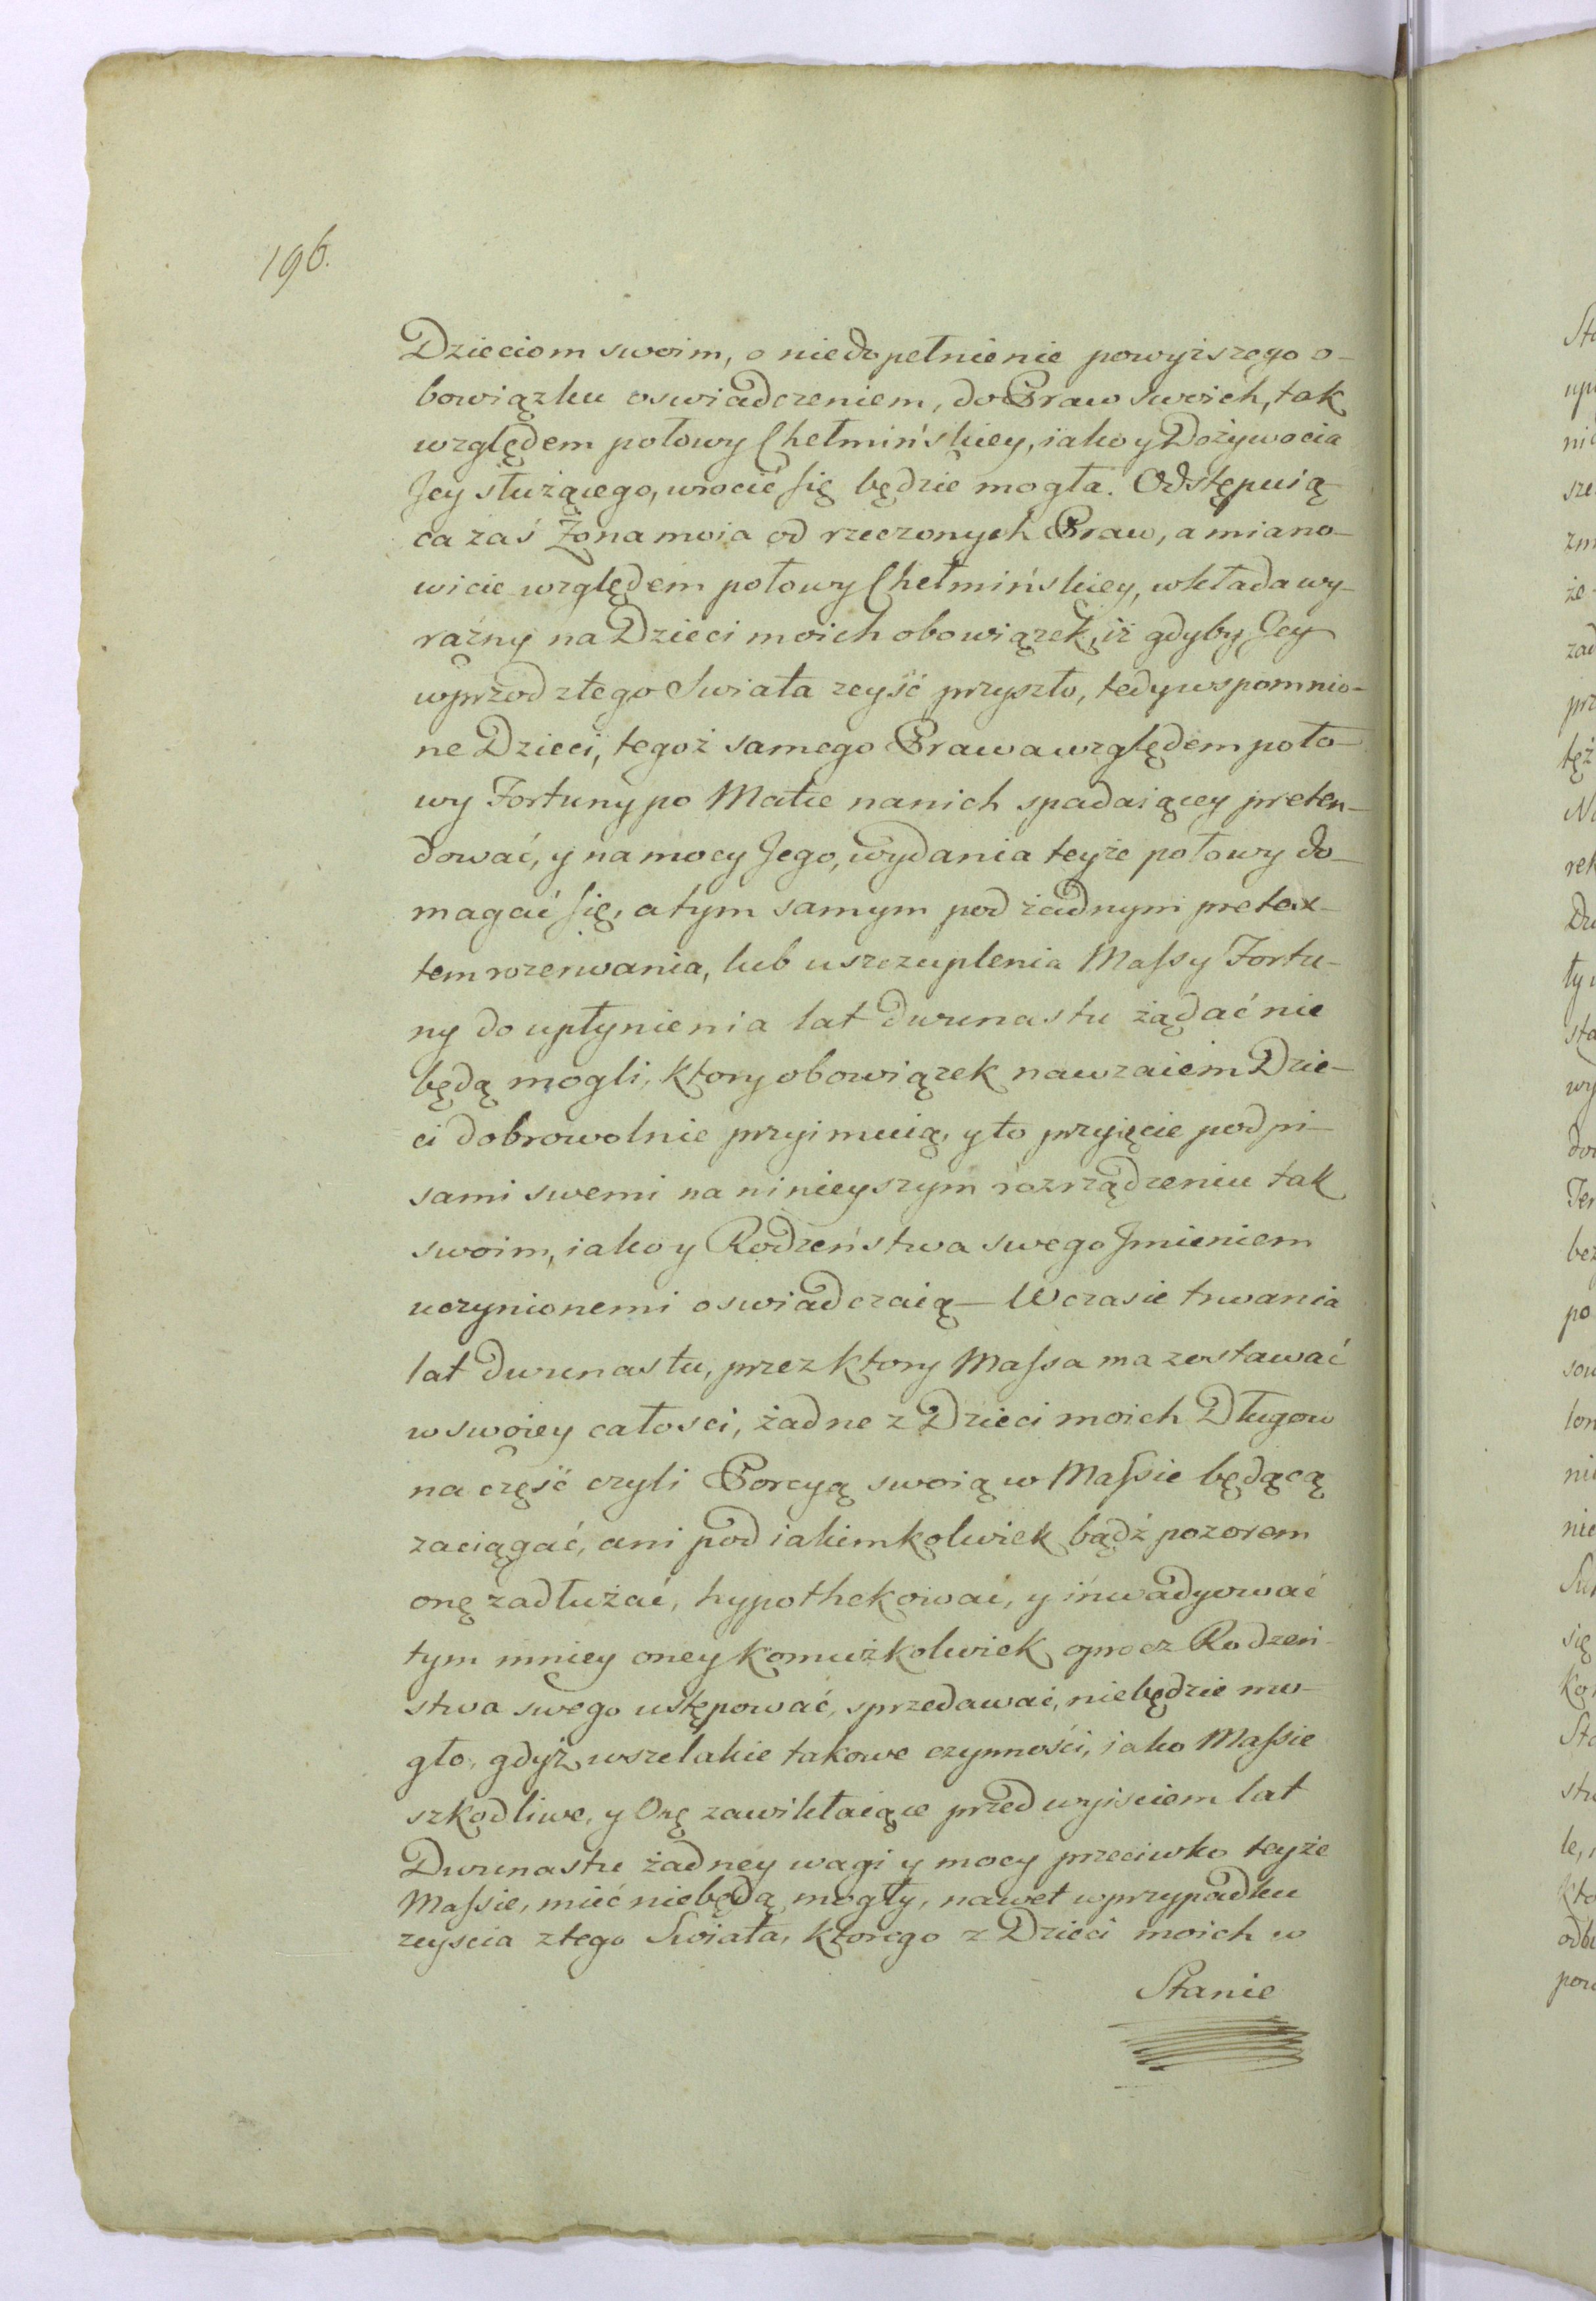 196.
Dzieciom swoim, o niedopełnienie powyższego o-
bowiązku oswiadczeniem, do Praw swoich, tak
względem połowy Chełmińskiey, iako y Dożywocia
Jey służącego, wrocić się będzie mogła. Odstępuią
ca zaś Żona moia od rzeczonych Praw, a miano-
wicie względem połowy Chełmińskiey, wkłada wy-
raźny na Dzieci moich obowiązek, iż gdyby Jey
wprzod z tego Swiata zeyść przyszło, tedy wspomnio-
ne Dzieci, tegoż samego Prawa względem poło-
wy Fortuny po Matce na nich spadaiącey preten-
dować, y na mocy Jego, wydania teyże połowy do-
magać się, a tym samym pod żadnym pretex-
tem rozerwania, lub uszczuplenia Massy Fortu-
ny do upłynienia lat dwunastu żądać nie
będą mogli, ktory obowiązek nawzaiem Dzie-
ci dobrowolnie przyimuią, y to przyięcie podpi-
sami swemi na ninieyszym rozrządzeniu tak
swoim, iako y Rodzeństwa swego Jmieniem
uczynionemi oswiadczaią — W czasie trwania
lat dwunastu, przez ktory Massa ma zostawać
w swoiey całosci, żadne z Dzieci moich Długow
na część czyli Porcyą swoią w Massie będącą
zaciągać, ani pod iakimkolwiek bądź pozorem
onę zadłużać, hypothekować, y inwadyować
tym mniey oney komużkolwiek oprocz Rodzeń-
stwa swego ustępować, sprzedawać, niebędzie mo-
gło, gdyż wszelakie takowe czynności, iako Massie
szkodliwe, y Onę zawikłaiące przed wyisciem lat
Dwunastu żadney wagi y mocy przeciwko teyże
Massie, mieć niebędą mogły, nawet w przypadku
zeyscia z tego Swiata, ktorego z Dzieci moich w
Stanie